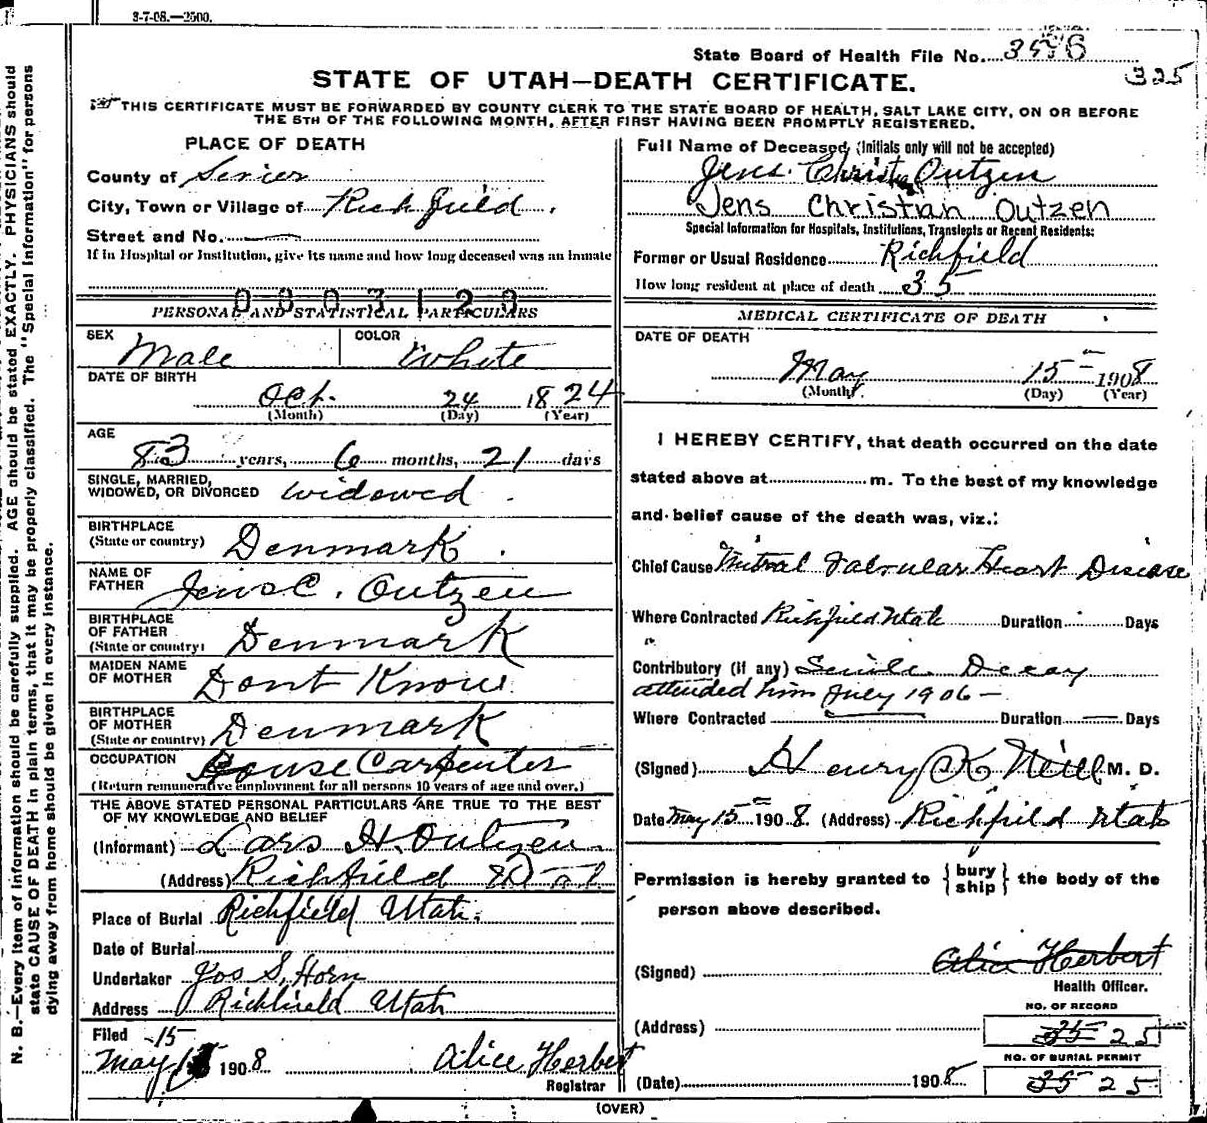 3-7-08.—2500.
State Board of Health File No. 3576
325
STATE OF UTAH—DEATH CERTIFICATE.
THIS CERTIFICATE MUST BE FORWARDED BY COUNTY CLERK TO THE STATE BOARD OF HEALTH, SALT LAKE CITY, ON OR BEFORE
THE 5TH OF THE FOLLOWING MONTH, AFTER FIRST HAVING BEEN PROMPTLY REGISTERED.
N. B.—Every item of information should be carefully supplied. AGE should be stated EXACTLY. PHYSICIANS should
state CAUSE OF DEATH in plain terms, that it may be properly classified. The "Special Information" for persons
dying away from home should be given in every instance.
PLACE OF DEATH
County of Sevier
City, Town or Village of Richfield.
Street and No. —
If in Hospital or Institution, give its name and how long deceased was an inmate
0003123
PERSONAL AND STATISTICAL PARTICULARS
SEX Male
COLOR White
DATE OF BIRTH
Oct. 24 1824
(Month) (Day) (Year)
AGE
83 years, 6 months, 21 days
SINGLE, MARRIED,
WIDOWED, OR DIVORCED widowed.
BIRTHPLACE
(State or country) Denmark.
NAME OF
FATHER Jens C. Outzen
BIRTHPLACE
OF FATHER
(State or country) Denmark
MAIDEN NAME
OF MOTHER Dont Know
BIRTHPLACE
OF MOTHER
(State or country) Denmark
OCCUPATION House Carpenter
(Return remunerative employment for all persons 10 years of age and over.)
THE ABOVE STATED PERSONAL PARTICULARS ARE TRUE TO THE BEST
OF MY KNOWLEDGE AND BELIEF
(Informant) Lars H. Outzen
(Address) Richfield Utah
Place of Burial Richfield Utah.
Date of Burial
Undertaker Jos S. Horn
Address Richfield Utah
Filed 15
May 1908 Alice Herbert
Registrar
Full Name of Deceased (Initials only will not be accepted)
Jens Christn Outzen
Jens Christian Outzen
Special Information for Hospitals, Institutions, Transients or Recent Residents:
Former or Usual Residence Richfield
How long resident at place of death 35
MEDICAL CERTIFICATE OF DEATH
DATE OF DEATH
May 15 1908
(Month) (Day) (Year)
I HEREBY CERTIFY, that death occurred on the date
stated above at m. To the best of my knowledge
and belief cause of the death was, viz.:
Chief Cause Mitral Valvular Heart Disease
Where Contracted Richfield Utah Duration Days
Contributory (if any) Senile Decay
attended him July 1906 —
Where Contracted — Duration — Days
(Signed) Henry K Neill M. D.
Date May 15 1908. (Address) Richfield Utah
Permission is hereby granted to { bury
ship } the body of the
person above described.
(Signed) Alice Herbert
Health Officer.
NO. OF RECORD
(Address) 35 25
NO. OF BURIAL PERMIT
(Date) 1908 35 25
(OVER)